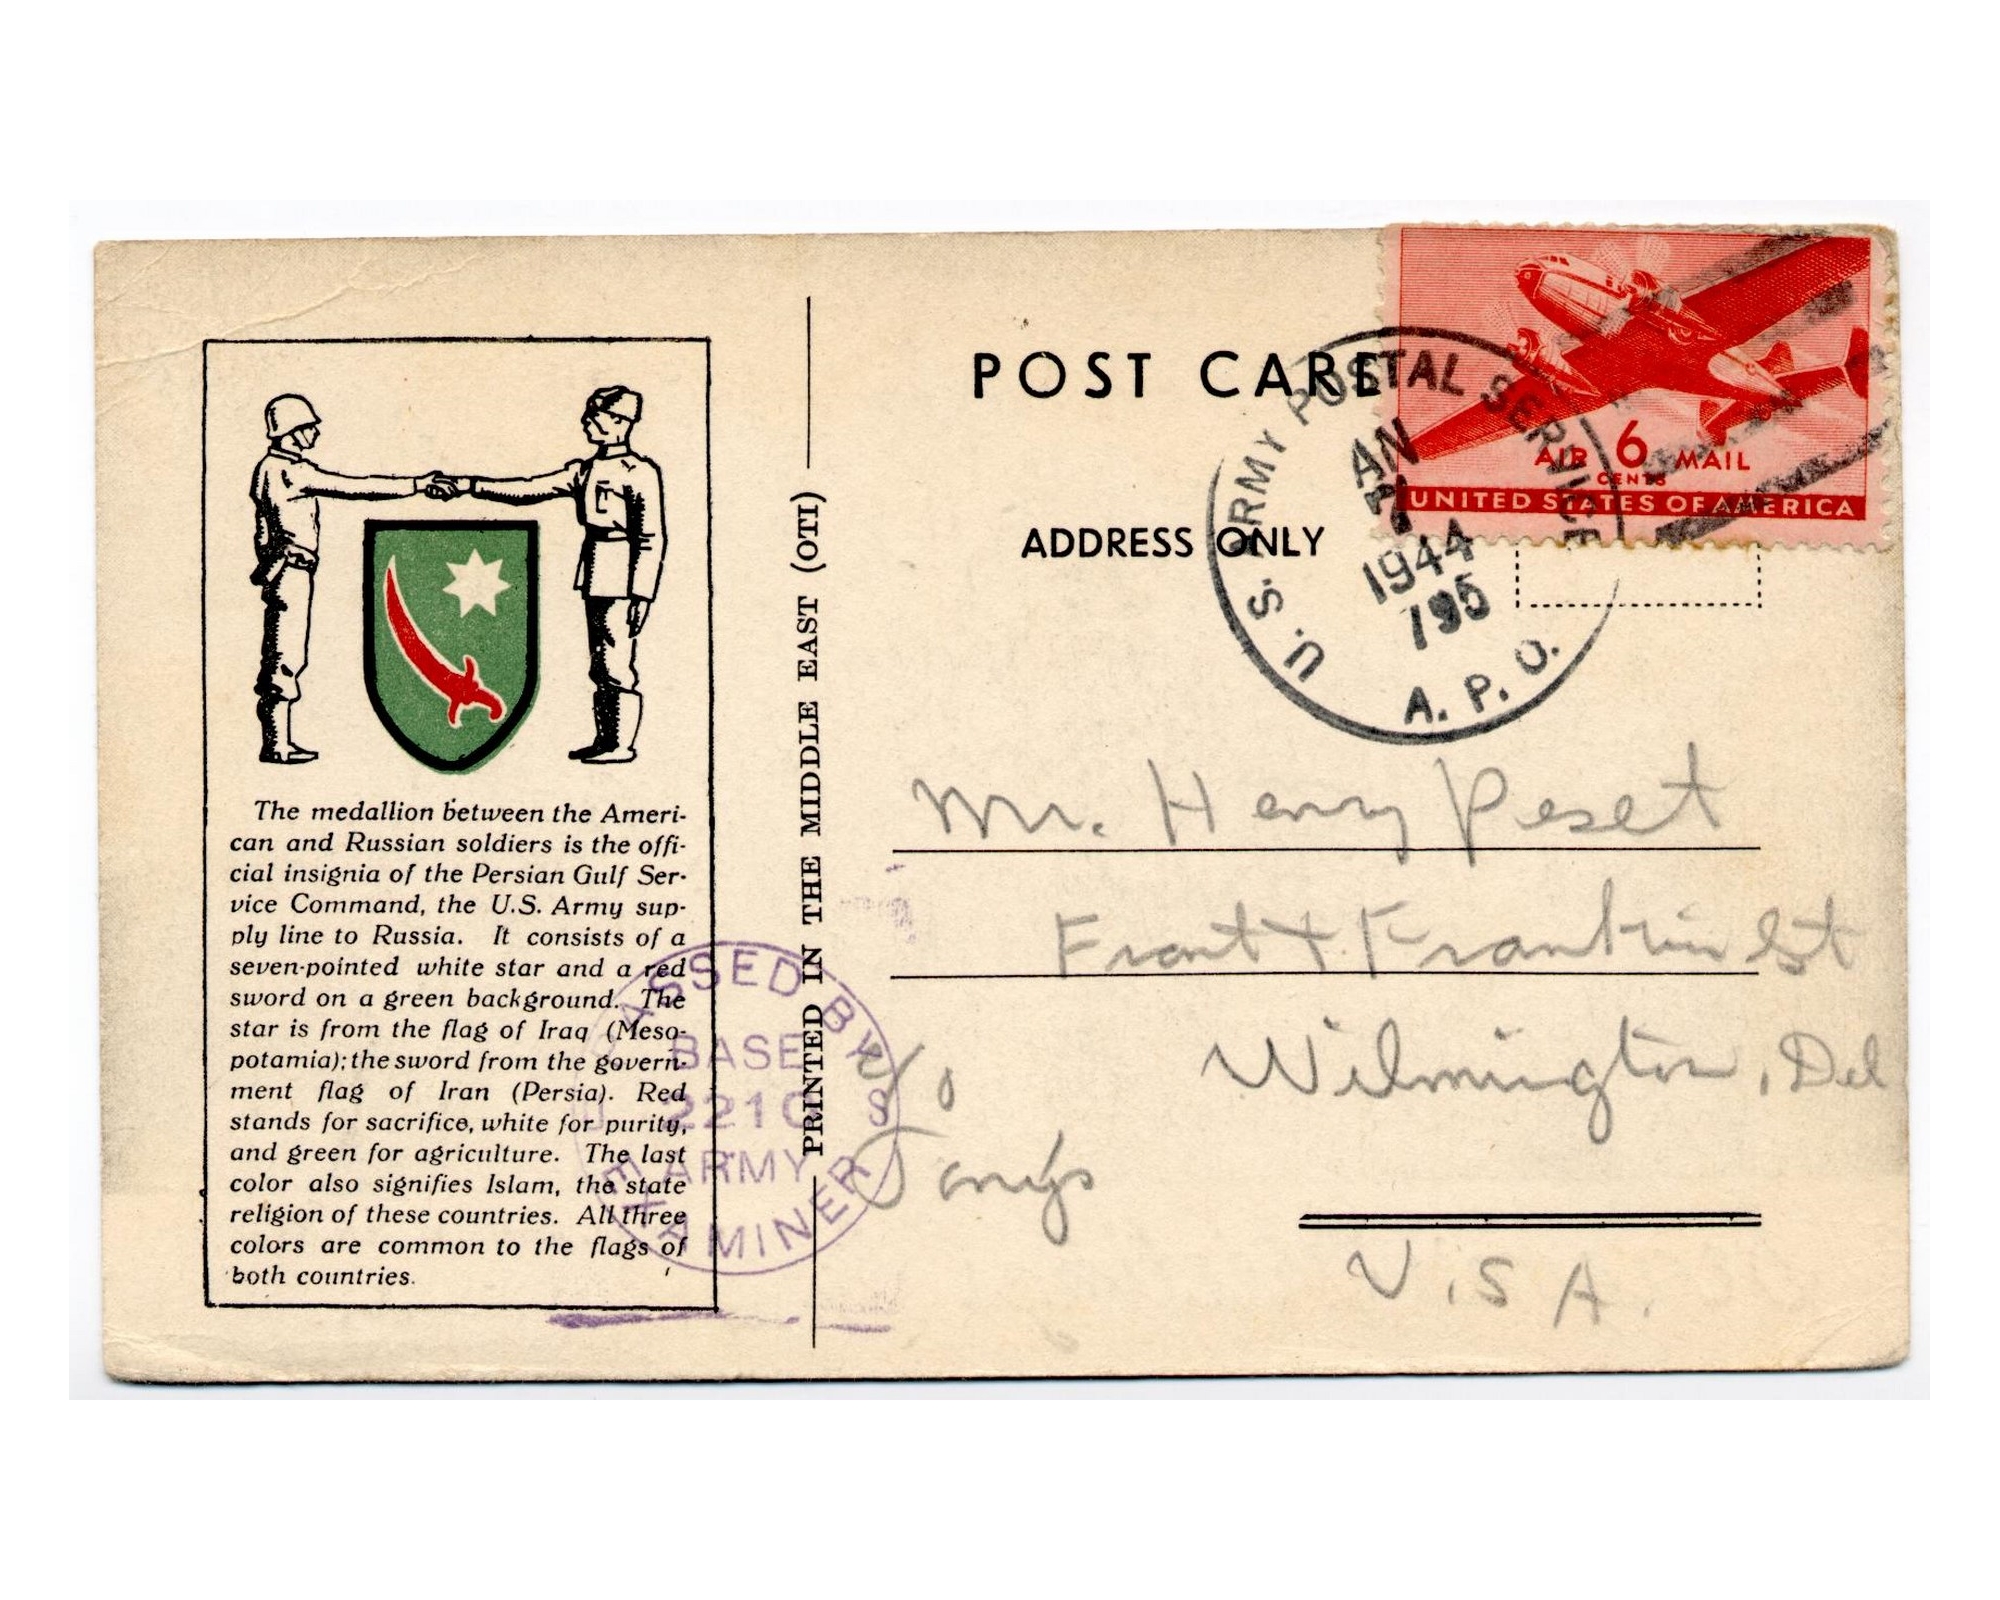 The medallion between the Ameri-
can and Russian soldiers is the offi-
cial insignia of the Persian Gulf Ser-
vice Command, the U.S. Army sup-
ply line to Russia. It consists of a
seven-pointed white star and a red
sword on a green background. The
star is from the flag of Iraq (Meso-
potamia); the sword from the govern-
ment flag of Iran (Persia). Red
stands for sacrifice, white for purity,
and green for agriculture. The last
color also signifies Islam, the state
religion of these countries. All three
colors are common to the flags of
both countries.
PASSED BY
BASE
2210
ARMY
EXAMINER
U S
PRINTED IN THE MIDDLE EAST (OTI)
POST CARD
ADDRESS ONLY
U.S. ARMY POSTAL SERVICE
JAN
7
1944
195
A. P. O.
AIR 6 MAIL
CENTS
UNITED STATES OF AMERICA
Mr. Henry Peset
Front & Franklin St
Wilmington, Del
c/o
Tony's
U.S.A.